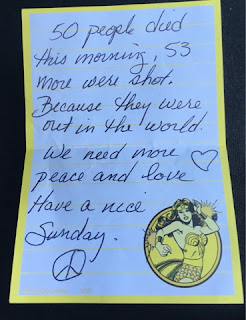 50 people died
this morning, 53
more were shot.
Because they were
out in the world.
We need more
peace and love
Have a nice
Sunday.